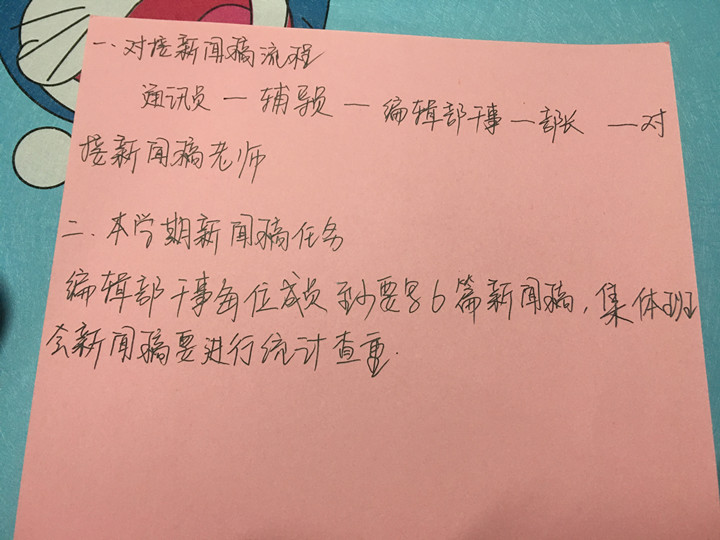 一、对接新闻稿流程
通讯员一辅导员一编辑部干事一部长 一对
接新闻稿老师
二、本学期新闻稿任务
编辑部干事每位成员至少要写6篇新闻稿,集体班
会新闻稿要进行统计查重.